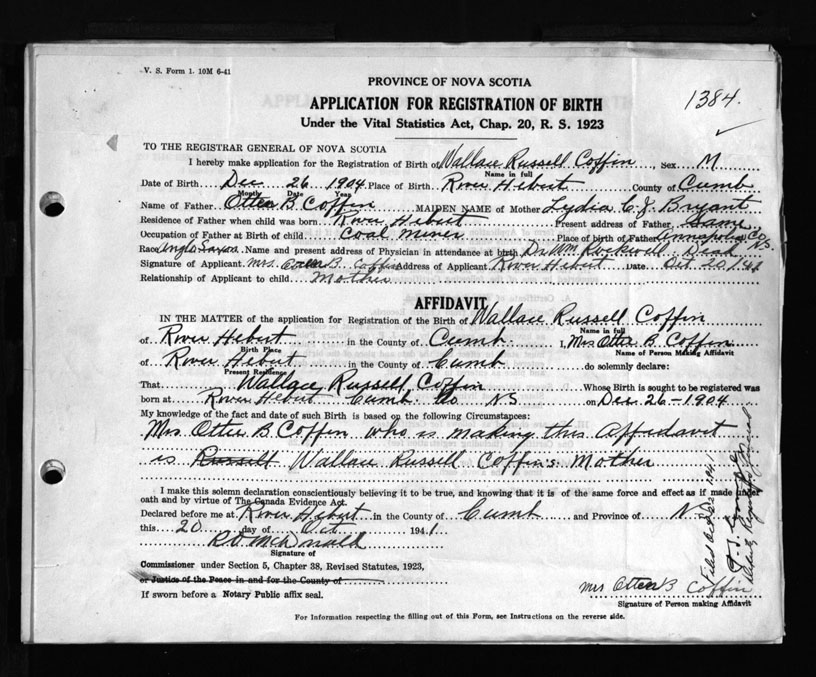 V. S. Form 1. 10M 6-41
PROVINCE OF NOVA SCOTIA
1384.
APPLICATION FOR REGISTRATION OF BIRTH
Under the Vital Statistics Act, Chap. 20, R. S. 1923
TO THE REGISTRAR GENERAL OF NOVA SCOTIA
I hereby make application for the Registration of Birth of Wallace Russell Coffin, Sex M
Name in full
Date of Birth Dec 26 1904 Place of Birth River Hebert County of Cumb
Month Date Year
Name of Father Otter B Coffin MAIDEN NAME of Mother Lydia C. J. Bryant
Residence of Father when child was born River Hebert Present address of Father Same
Occupation of Father at Birth of child Coal Miner Place of birth of Father Annapolis Co NS.
Race Anglo Saxon Name and present address of Physician in attendance at birth Dr Wm Rockwell Dead
Signature of Applicant Mrs. Otter B. Coffin Address of Applicant River Hebert Date Oct 20/41
Relationship of Applicant to child Mother
AFFIDAVIT
IN THE MATTER of the application for Registration of the Birth of Wallace Russell Coffin
Name in full
of River Hebert in the County of Cumb I, Mrs Otter B. Coffin
Birth Place Name of Person Making Affidavit
of River Hebert in the County of Cumb do solemnly declare:
Present Residence
That Wallace Russell Coffin Whose Birth is sought to be registered was
born at River Hebert Cumb Co NS on Dec 26-1904
My knowledge of the fact and date of such Birth is based on the following Circumstances:
Mrs Otter B Coffin who is making this Affadavit
is Russell Wallace Russell Coffin's Mother
I make this solemn declaration conscientiously believing it to be true, and knowing that it is of the same force and effect as if made under
oath and by virtue of The Canada Evidence Act.
Declared before me at River Hebert in the County of Cumb and Province of NS
this 20 day of Oct 1941
R.D. McDonald
Signature of
Commissioner under Section 5, Chapter 38, Revised Statutes, 1923,
or Justice of the Peace in and for the County of
If sworn before a Notary Public affix seal.
Mrs Otter B Coffin
Signature of Person making Affidavit
For Information respecting the filling out of this Form, see Instructions on the reverse side.
Filed Oct 1941
Deputy Registrar General